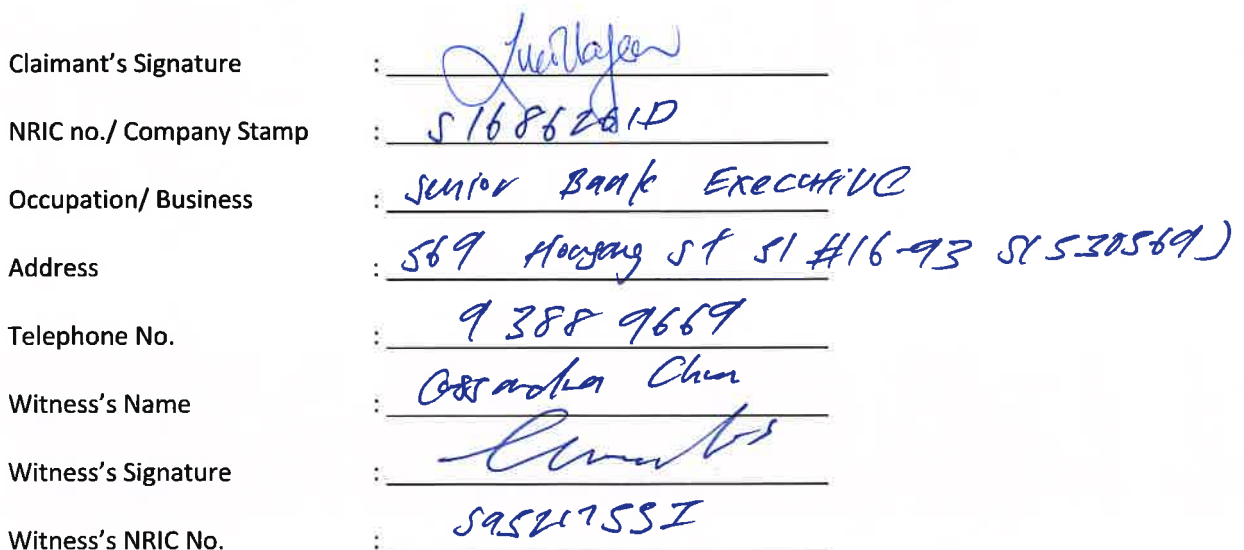 Claimant's Signature :
NRIC no./ Company Stamp : S1686261D
Occupation/ Business : Senior Bank Executive
Address : 569 Hougang St 51 #16-93 S(530569)
Telephone No. : 9388 9669
Witness's Name : Cassandra Chua
Witness's Signature :
Witness's NRIC No. :